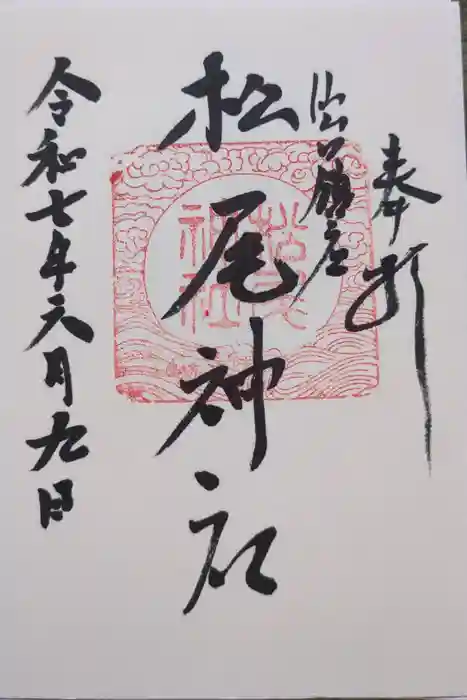 奉拝
松尾神社
松尾
神社
令和七年六月九日